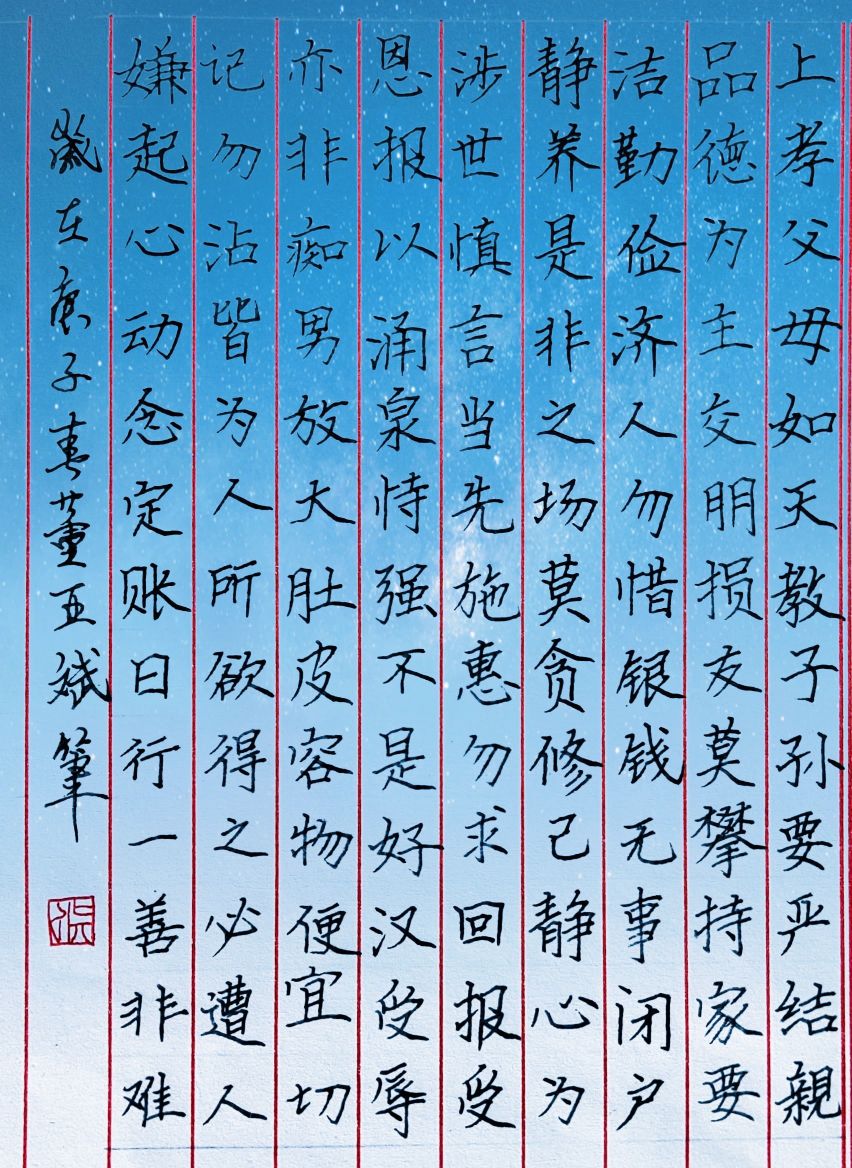 上孝父母如天教子孙要严结親
品德为主交朋损友莫攀持家要
洁勤俭济人勿惜银钱无事闭户
静养是非之场莫贪修己静心为
涉世慎言当先施惠勿求回报受
恩报以涌泉恃强不是好汉受辱
亦非痴男放大肚皮容物便宜切
记勿沾皆为人所欲得之必遭人
嫌起心动念定账日行一善非难
歲在庚子春董五斌筆